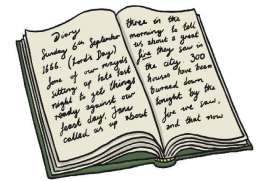 Diary
Sunday 6th September
1666 (Lord's Day)
Some of our mayds
sitting up late last
night to get things
ready against our
feast day, Jane
called us up about
three in the
morning, to tell
us about a great
fire they saw in
the city. 300
houses have been
burned down
tonight by the
fire we saw,
and that now